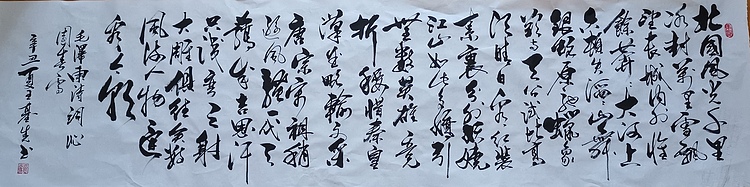 北國風光千里
冰封萬里雪飄
望長城內外惟
餘莽莽大河上
下頓失滔滔山舞
銀蛇原馳蠟象
欲與天公試比高
須晴日看紅裝
素裹分外妖嬈
江山如此多嬌引
無數英雄競
折腰惜秦皇
漢武略輸文采
唐宗宋祖稍
遜風騷一代天
驕成吉思汗
只識彎弓射
大雕俱往矣數
風流人物還
看今朝
毛澤東詩詞沁
園春雪
辛丑夏